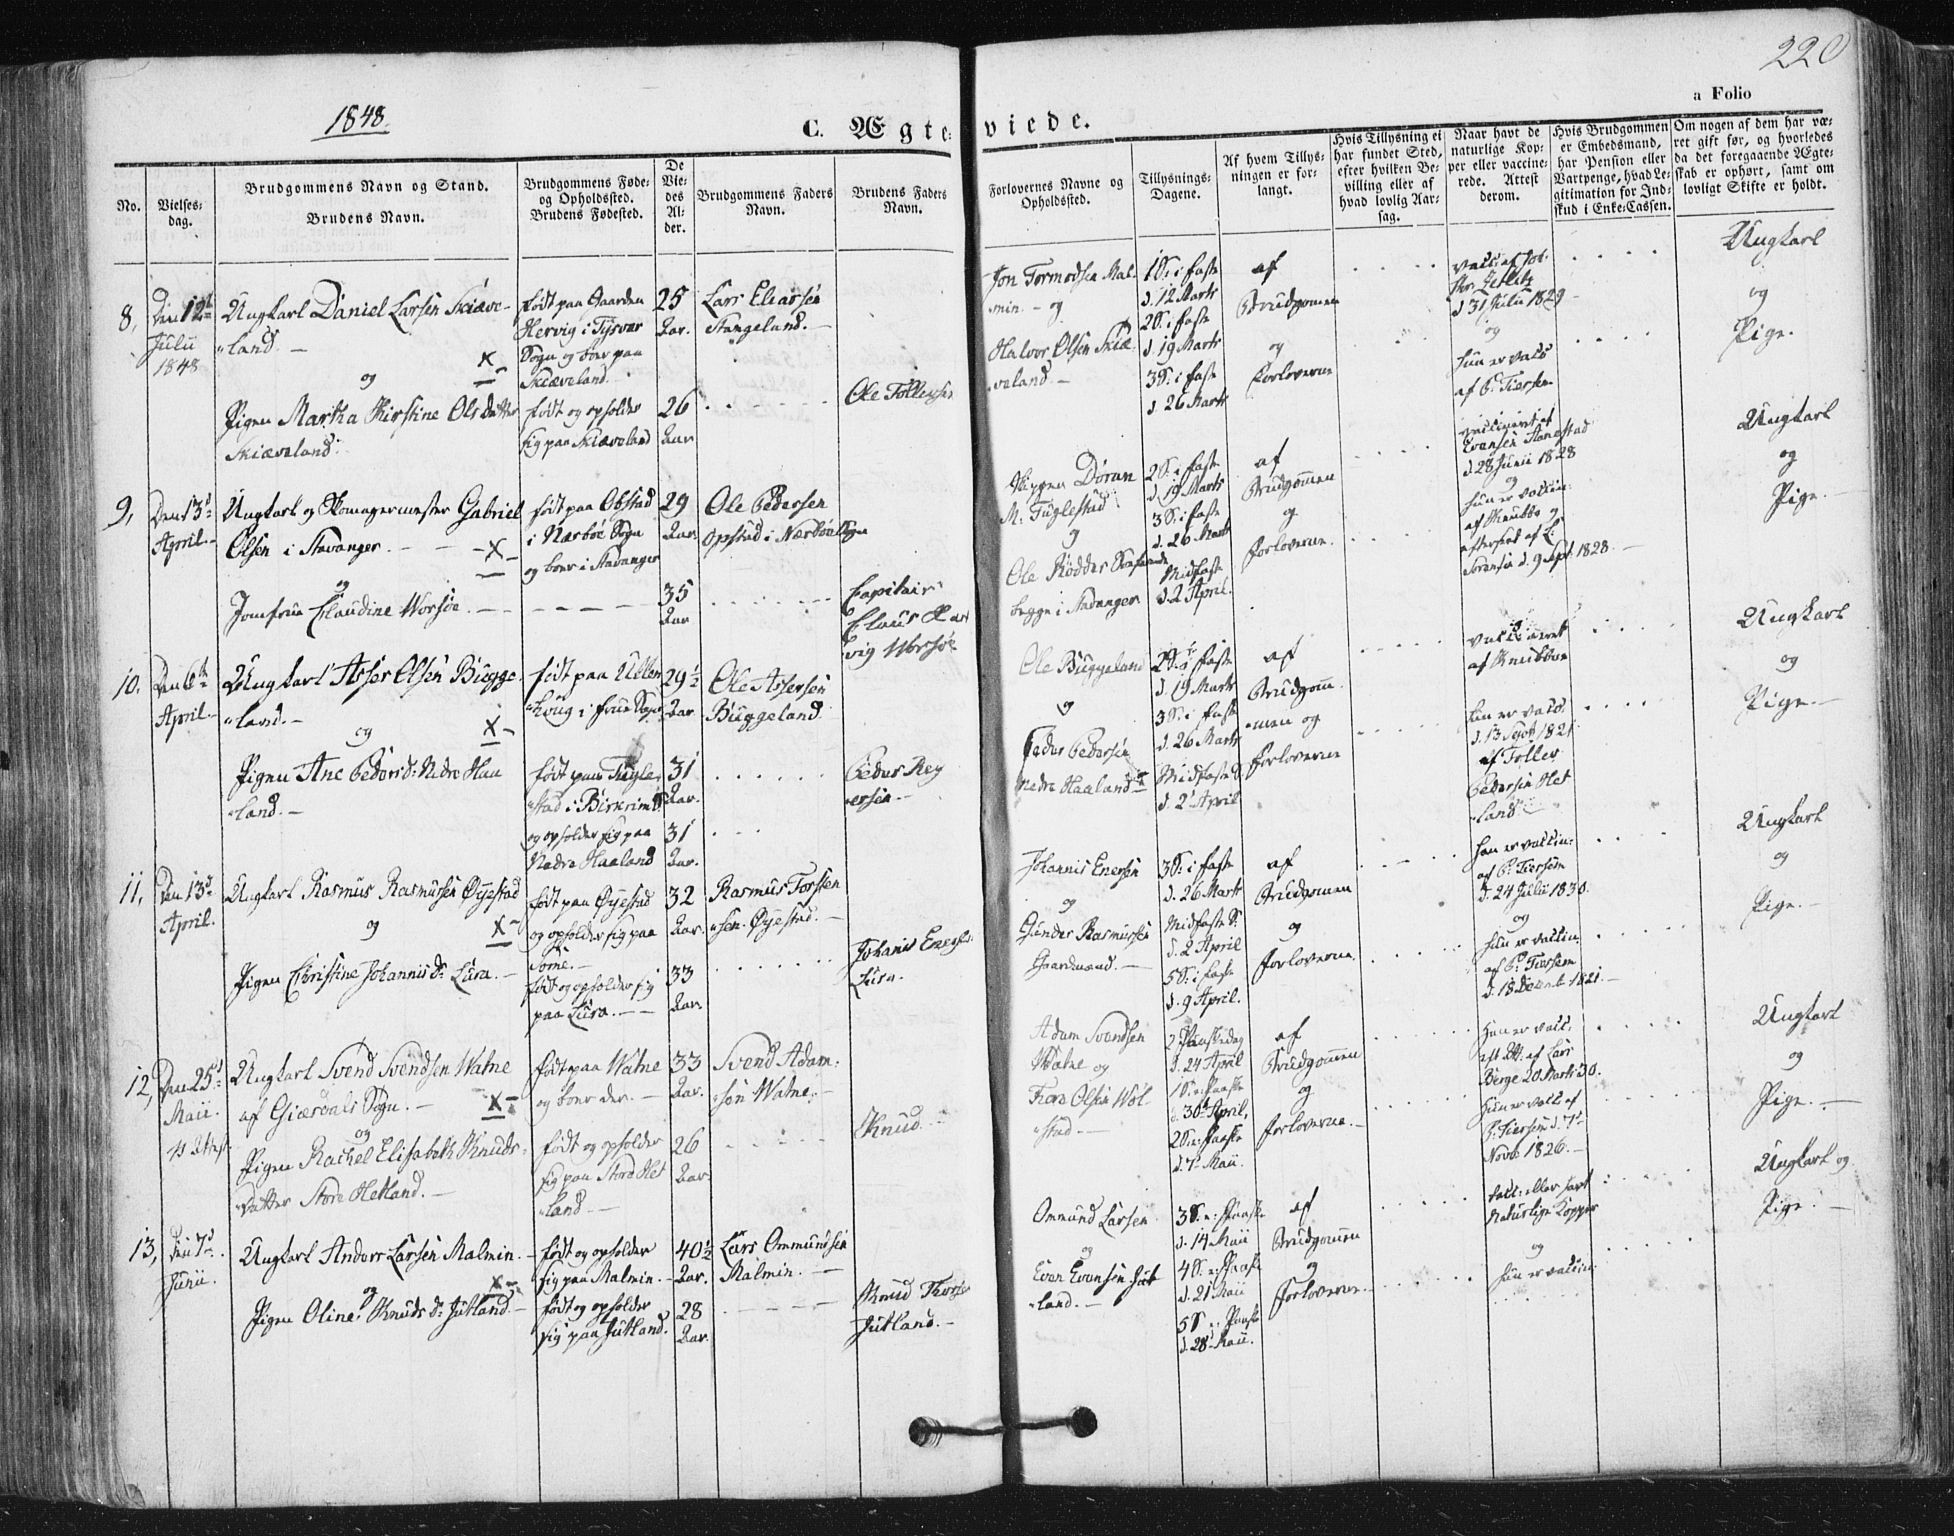 220
a Folio
1848.
C. Ægte-
viede.
No.
Vielses-
dag.
Brudgommens Navn og Stand.
Brudens Navn.
Brudgommens Føde-
og Opholdssted.
Brudens Fødested.
De
Vie-
des
Al-
der.
Brudgommens Faders
Navn.
Brudens Faders
Navn.
Forlovernes Navne og
Opholdssted.
Tillysnings-
Dagene.
Af hvem Tillys-
ningen er for-
langt.
Hvis Tillysning ei
har fundet Sted,
efter hvilken Be-
villing eller af
hvad lovlig Aar-
sag.
Naar havt de
naturlige Kop-
per eller vaccine-
rede. Attest
derom.
Hvis Brudgommen
er Embedsmand,
har Pension eller
Vartpenge, hvad Le-
gitimation for Ind-
skud i Enke-Cassen.
Om nogen af dem har væ-
ret gift før, og hvorledes
da det foregaaende Ægte-
skab er ophørt, samt om
lovligt Skifte er holdt.
8,
Den 12te
Julii
1848
Ungkarl Daniel Larsen Skiæve-
land.
og
Pigen Martha Kirstine Olsdatter
Skiæveland.
født paa Gaarden
Hervig i Tysvær
Sogn og boer paa
Skiæveland.
født og opholder
sig paa Skiæveland
25
Aar.
26
Aar
Lars Eliassen
Stangeland.
Ole Tollefsen
Jon Tormodsen Mal-
min. og
Halvor Olsen Skiæ
veland
1 S. i Faste
d. 12 Marts
2 S. i Faste
d. 19 Marts
3 S. i Faste
d. 26 Marts
af
Brudgommen
og
Forloverne
d 31 Julii 1829
og
hun er vacc
af P. Tiersen
Ungkarl
og
Pige.
9,
Den 13de
April.
Ungkarl og Skomagermester Gabriel
Olsen i Stavanger.
og
Jomfrue Claudine Worsøe.
født paa Obstad
i Nærboe Sogn
og boer i Stavanger
29
Aar.
35
Aar
Ole Pedersen
Opstad i Nærboe Sogn
Capitain
Claus
vig Worsøe
Skipper Døran
M. Fuglestad
og
Ole Rødder
begge i Stavanger
2 S. i Faste
d. 19 Marts
3 S. i Faste
d. 26 Marts
Midfaste
d. 2 April.
af
Brudgommen
og
Forloverne.
vaccineret af
d. 28 Junii 1828
og
hun er vaccin.
Sørensen d. 9 Sept. 1828.
Ungkarl
og
Pige.
10.
Den 6te
April.
Ungkarl Asser Olsen Bügge
land.
og
Pigen Ane Pedersd: Nedre Haa
land.
født paa Ullen
houg i Frue Sogn
født paa Fugle
stad i Birkrim S
og opholder sig paa
Nedre Haaland
29½
Aar
31
Aar.
31
Aar.
Ole Assersen
Büggeland
Peder Rey
ersen.
Ole Büggeland
og
Peder Pedersen
Nedre Haaland
2 S. i Faste
d. 19 Marts
3 S. i Faste
d. 26 Marts
Midfaste S.
d. 2 April
af
Brudgom-
men og
Forloverne
vaccineret
hun er vacc.
d. 13 Sept 1821
af Tollev
Pedersen Het
land
Ungkarl
og
Pige.
11,
Den 13de
April.
Ungkarl Rasmus Rasmussen Øyestad
og
Pigen Christine Johannisd: Lura.
født paa Øyestad
og opholder sig paa
Sørne.
født og opholder sig
paa Lura.
32
Aar.
33
Aar.
Rasmus Torsten
sen Øyestad.
Johanis Enersen
Lura.
Johannis Enersen
og
Gunder Rasmussen
Gaardmand.
3 S. i Faste
d. 26 Marts
Midfaste S.
d. 2 April
5 S. i Faste
d. 9 April.
af
Brudgommen
og
Forloverne.
han er vaccin:
af P. Tiersen
d. 24 Julii 1830.
og
hun er vaccin.
af P. Tiersen
d. 18 Decemb 1821.
Ungkarl
og
Pige.
12,
Den 25de
Maii.
Ungkarl Svend Svendsen Watne
af Giæsdals Sogn.
og
Pigen Rachel Elisabeth Knuds-
datter Store Hetland.
født paa Watne
og boer der.
født og opholder
sig paa Store Het
land
33
Aar.
26
Aar.
Svend Adam-
sen Watne.
Knud
Adam Svendsen
Watne og
Tore Olsen Wol-
stad.
2 Paaskedag
d. 24 April
1 S. e. Paaske
d. 30te April.
2 S. e. Paaske
d. 7de Maii.
af
Brudgommen
og
Forloverne.
Han er vacc.
af Lars
Berge 20 Marts 30.
Hun er vacc af
P. Tiersen d. 7de
Novb 1826.
Ungkarl
og
Pige.
13,
Den 7de
Junii.
Ungkarl Anders Larsen Malmin.
og
Pigen Oline Knudsd: Jütland
født og opholder
sig paa Malmin.
født og opholder
sig paa Jütland.
40½
Aar.
28
Aar.
Lars Ommundsen
Malmin.
Knud
Jütland.
Ommund Larsen
og
Even Evensen Jüt
land.
3 S. e. Paaske
d. 14 Maii
4 S. e. Paaske
d. 21 Maii
5 S. e. Paaske
d. 28 Maii.
af
Brudgommen
og
Forloverne.
vacc. eller havt
Naturlige Kopper
og
hun er vaccin.
Ungkarl og
Pige.